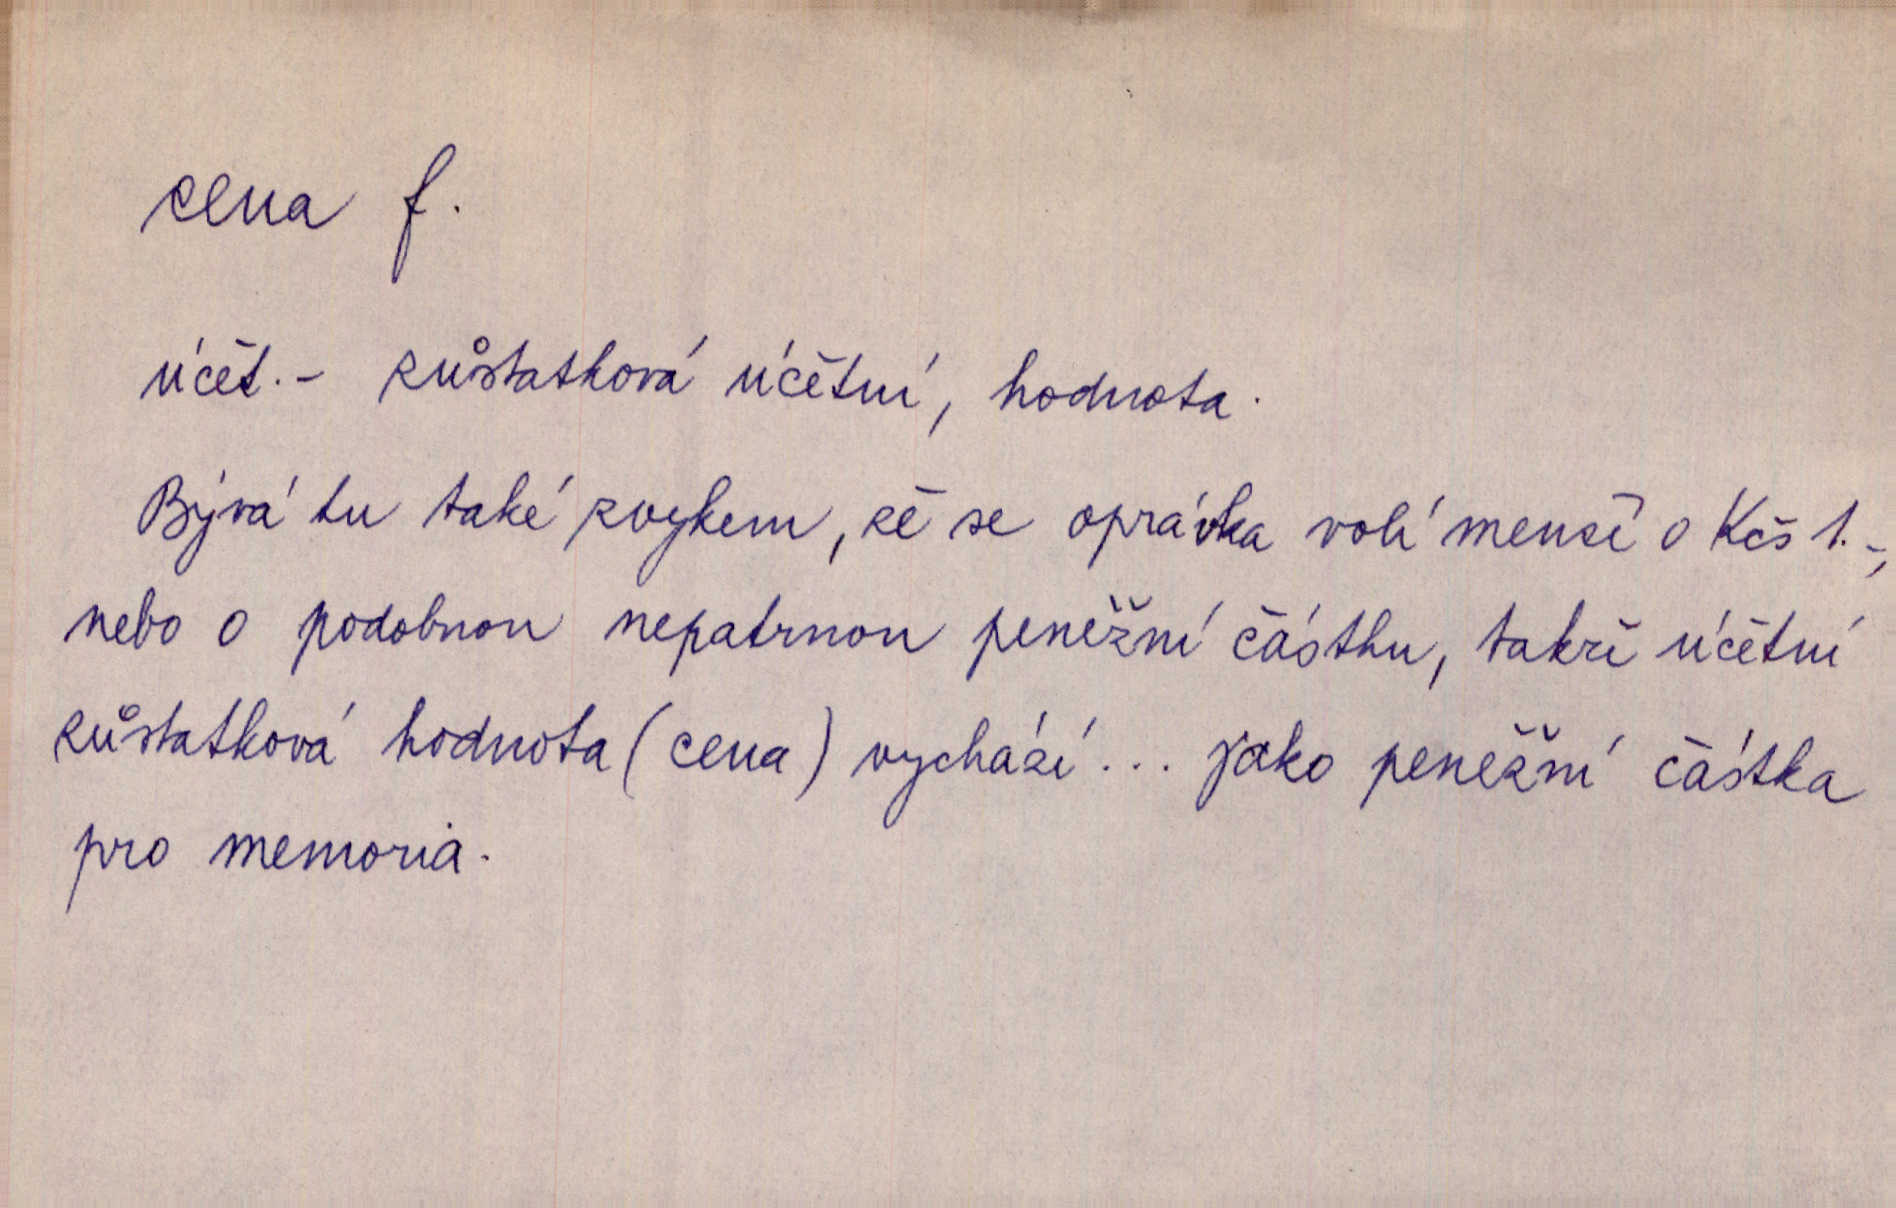 cena f.
účet. - zůstatková účětní, hodnota.
Bývá tu také zvykem, že se oprávka volí menší o Kčs 1.-,
nebo o podobnou nepatrnou peněžní částku, takže účetní
zůstatková hodnota (cena) vychází... jako peněžní částka
pro memoria.